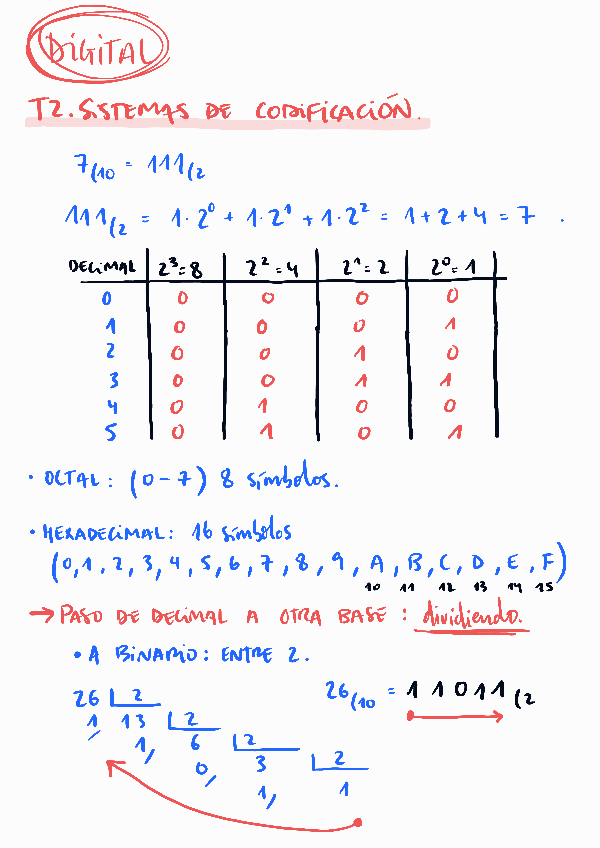 DIGITAL
T2. SISTEMAS DE CODIFICACIÓN.
7(10 = 111(2
111(2 = 1·2⁰ + 1·2¹ + 1·2² = 1+2+4 = 7 .
DECIMAL 2³=8 2²=4 2¹=2 2⁰=1
0 0 0 0 0
1 0 0 0 1
2 0 0 1 0
3 0 0 1 1
4 0 1 0 0
5 0 1 0 1
· OCTAL: (0-7) 8 símbolos.
· HEXADECIMAL: 16 símbolos
(0,1,2,3,4,5,6,7,8,9,A,B,C,D,E,F)
10 11 12 13 14 15
→ PASO DE DECIMAL A OTRA BASE: dividiendo.
• A BINARIO: ENTRE 2.
26 2 26(10 = 11011(2
1, 13 2
1, 6 2
0, 3 2
1, 1